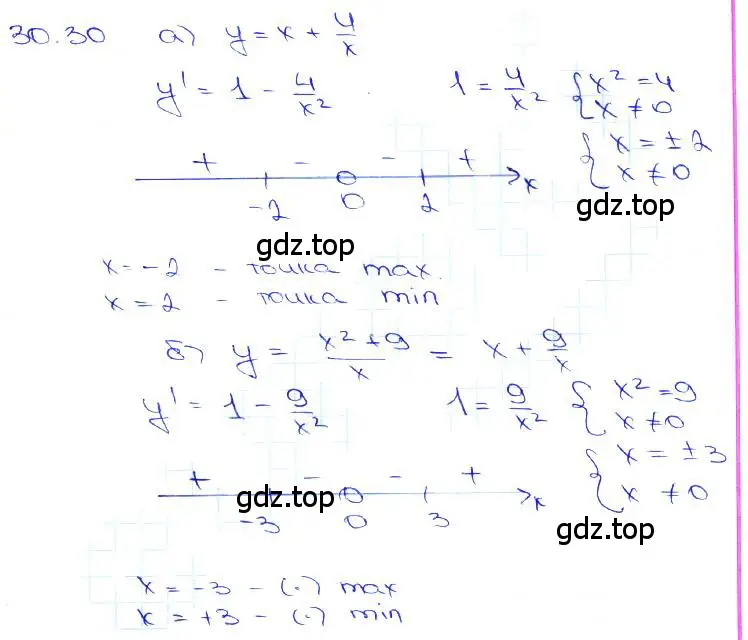 30.30 а) y = x + 4/x
y' = 1 - 4/x² . 1 = 4/x² { x² = 4
x ≠ 0
{ x = ±2
x ≠ 0
+ - - + x
-2 0 2
gdz.top
gdz.top
x = -2 - точка max.
x = 2 - точка min
б) y = (x² + 9)/x = x + 9/x
y' = 1 - 9/x² 1 = 9/x² { x² = 9
x ≠ 0
{ x = ±3
x ≠ 0
+ - - + x
gdz.top
-3 0 3
gdz.top
x = -3 - (·) max
x = +3 - (·) min